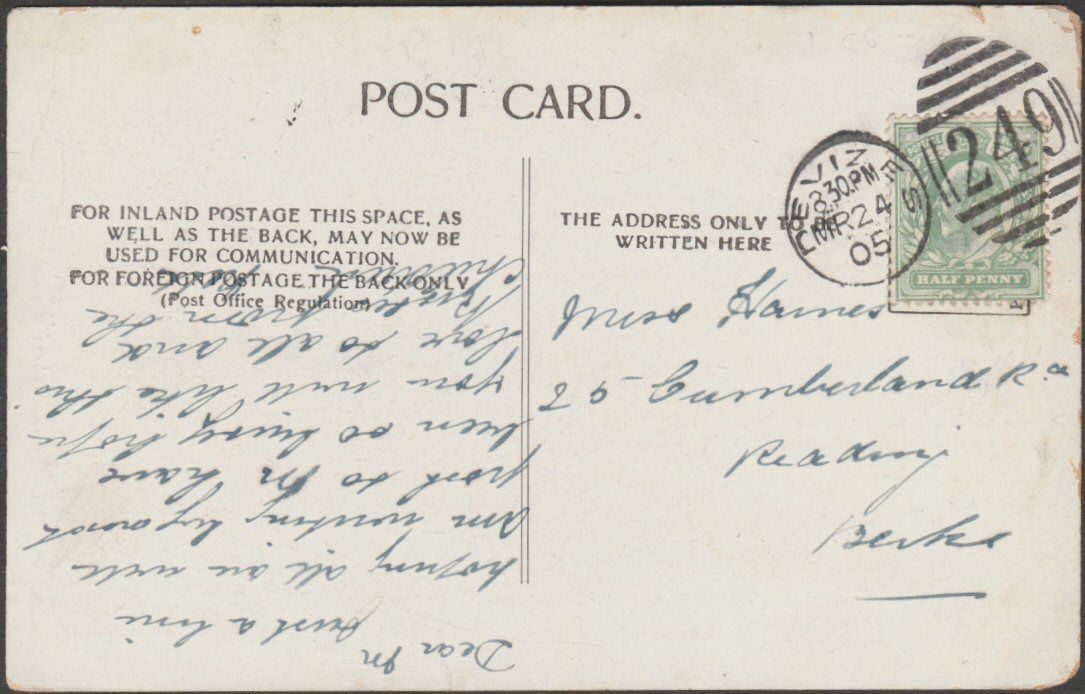 POST CARD.
FOR INLAND POSTAGE THIS SPACE, AS
WELL AS THE BACK, MAY NOW BE
USED FOR COMMUNICATION.
FOR FOREIGN POSTAGE THE BACK ONLY
(Post Office Regulation)
THE ADDRESS ONLY TO BE
WRITTEN HERE
DEVIZES
8.30PM
MR24
05
249
HALF PENNY
Miss Haines
25 Cumberland Rd
Reading
Berks
Dear M
Just a line
hoping all are well
am writing by next
post to M have
been so busy hope
you will like this
love to all and
from the
children